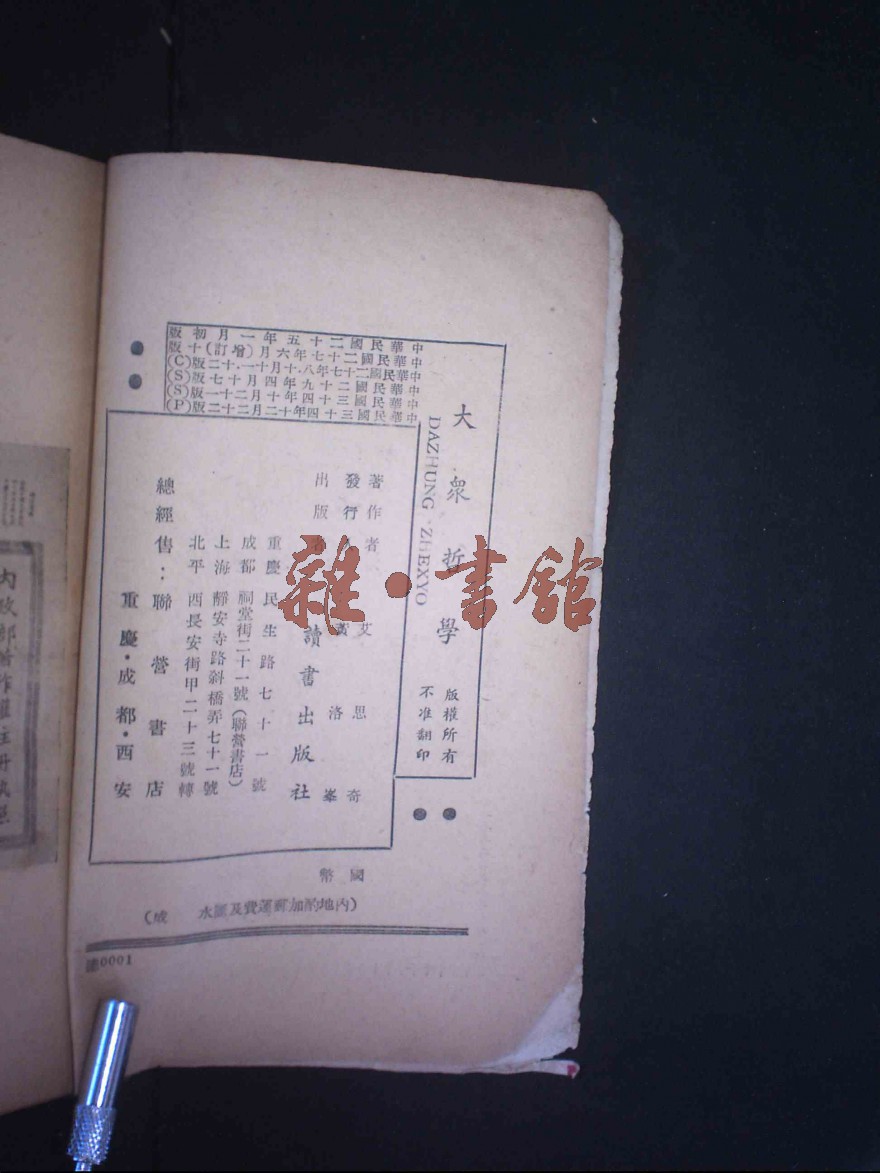 中華民國二十五年一月初版
中華民國二十七年六月(增訂)十版
中華民國二十七年八·十月十一·十二版(C)
中華民國二十九年四月十七版(S)
中華民國三十四年十月二十一版(S)
中華民國三十四年十二月二十二版(P)
大衆哲學
DAZHUNG ZHEXYO
版權所有
不准翻印
著作者 艾思奇
發行 黃洛峯
出版 讀書出版社
重慶民生路七十一號
成都祠堂街二十一號(聯營書店)
上海靜安寺路斜橋弄七十一號
北平西長安街甲二十三號轉
總經售:聯營書店
重慶·成都·西安
國幣
(內地酌加郵運費及匯水 成)
0001
雜·書館
內政部著作權註冊執照